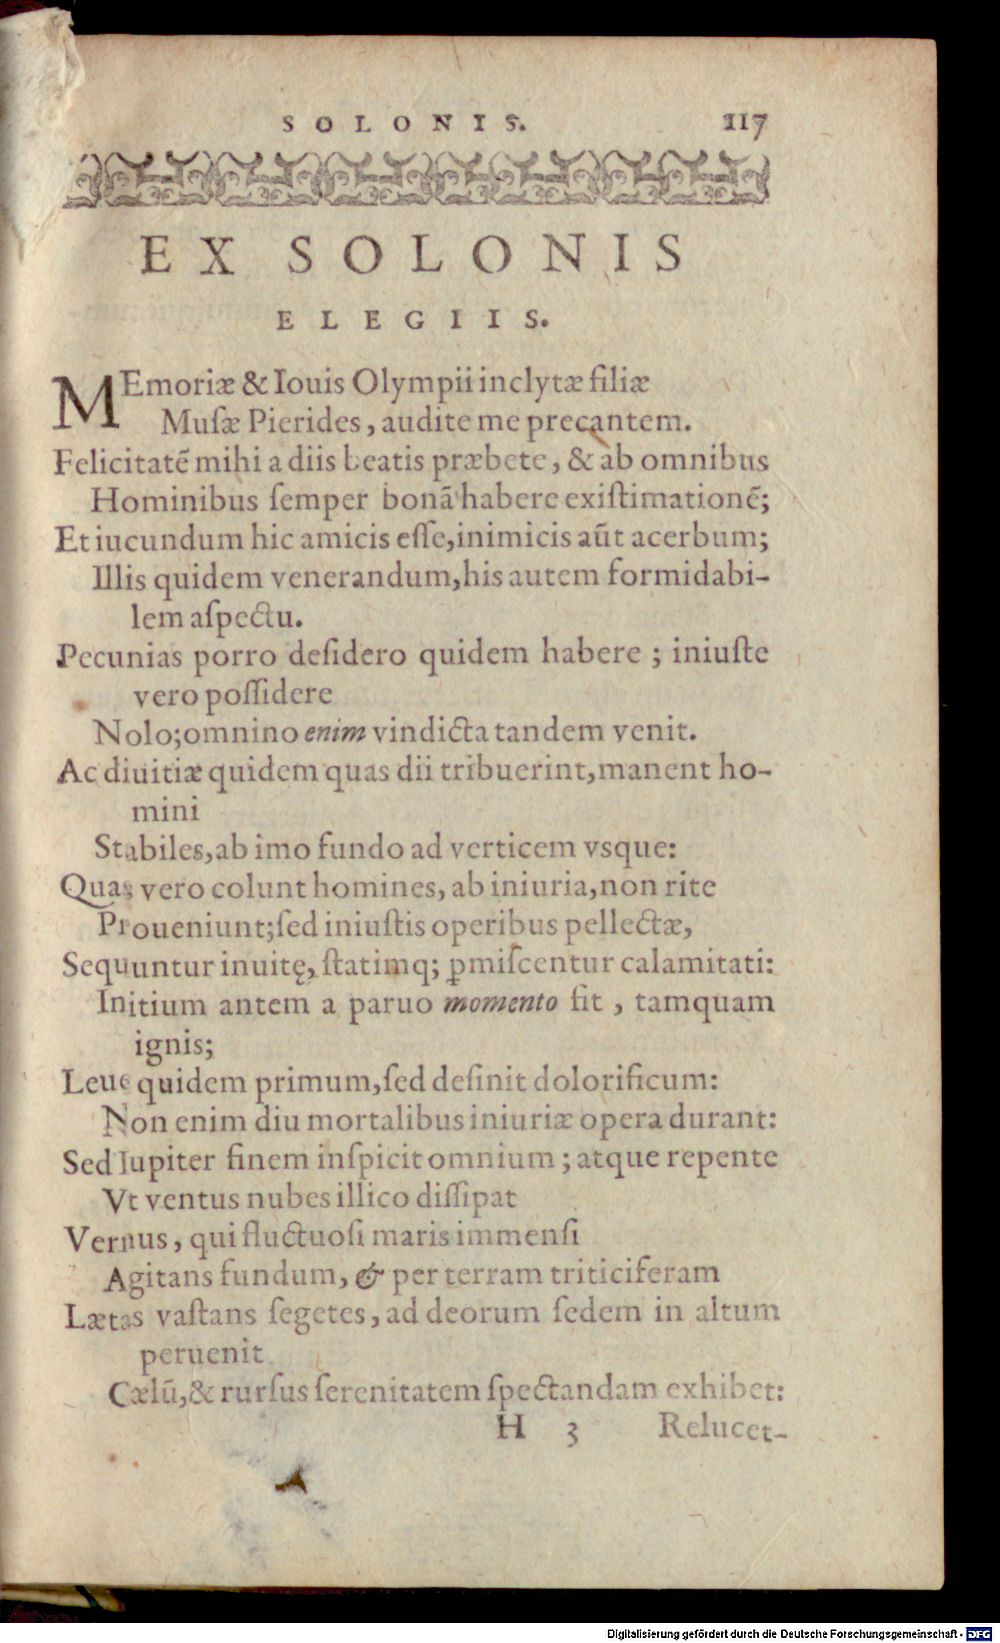 SOLONIS. 117
EX SOLONIS
ELEGIIS.
MEmoriæ & Iouis Olympii inclytæ filiæ
Muſæ Pierides, audite me precantem.
Felicitatē mihi a diis beatis præbete, & ab omnibus
Hominibus ſemper bonā habere exiſtimationē;
Et iucundum hic amicis eſſe, inimicis aūt acerbum;
Illis quidem venerandum, his autem formidabi-
lem aſpectu.
Pecunias porro deſidero quidem habere ; iniuſte
vero poſſidere
Nolo; omnino enim vindicta tandem venit.
Ac diuitiæ quidem quas dii tribuerint, manent ho-
mini
Stabiles, ab imo fundo ad verticem vsque:
Quas vero colunt homines, ab iniuria, non rite
Proueniunt; ſed iniuſtis operibus pellectæ,
Sequuntur inuitę, ſtatimq; ꝑmiſcentur calamitati:
Initium antem a paruo momento fit , tamquam
ignis;
Leue quidem primum, ſed deſinit dolorificum:
Non enim diu mortalibus iniuriæ opera durant:
Sed Iupiter finem inſpicit omnium ; atque repente
Vt ventus nubes illico diſſipat
Vernus, qui fluctuoſi maris immenſi
Agitans fundum, & per terram triticiferam
Lætas vaſtans ſegetes, ad deorum ſedem in altum
peruenit
Cælū, & rurſus ſerenitatem ſpectandam exhibet:
H 3 Relucet-
Digitalisierung gefördert durch die Deutsche Forschungsgemeinschaft - DFG